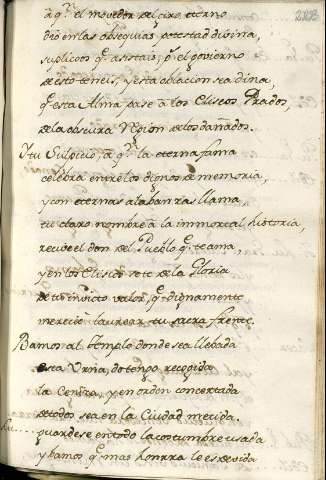 aqn. el movedor del giro eterno
dio en las obsequias potestad divina,
suplicoos qe. asistais, pr. el govierno
de esto teneis, y esta oblacion sea dina,
qe. esta Alma pase a los Eliseos Prados
de la obscura Region de los dañados.
Y tu Sulpicio, a qn. la eterna fama
celebra entre los dignos de memoria,
y con eternas alabanzas llama,
tu claro nombre a la immortal historia,
recive el don del Pueblo qe. te ama,
y en los Eliseos vete de la Gloria
de tu invicto valor, qe. dignamente
merecio laurear tu sacra frente.
Bamos al templo donde sea llebada
esta Urna, do tengo recogida
la Ceniza, y en orden concertada
de todos sea en la Ciudad metida
guardese en todo la costumbre usada
y bamos qe. mas honrra le es devida